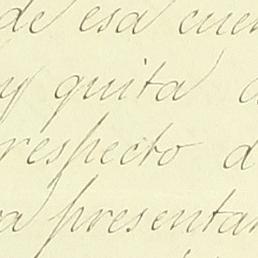 de esa cuen
y quita a
respecto d
a presentar